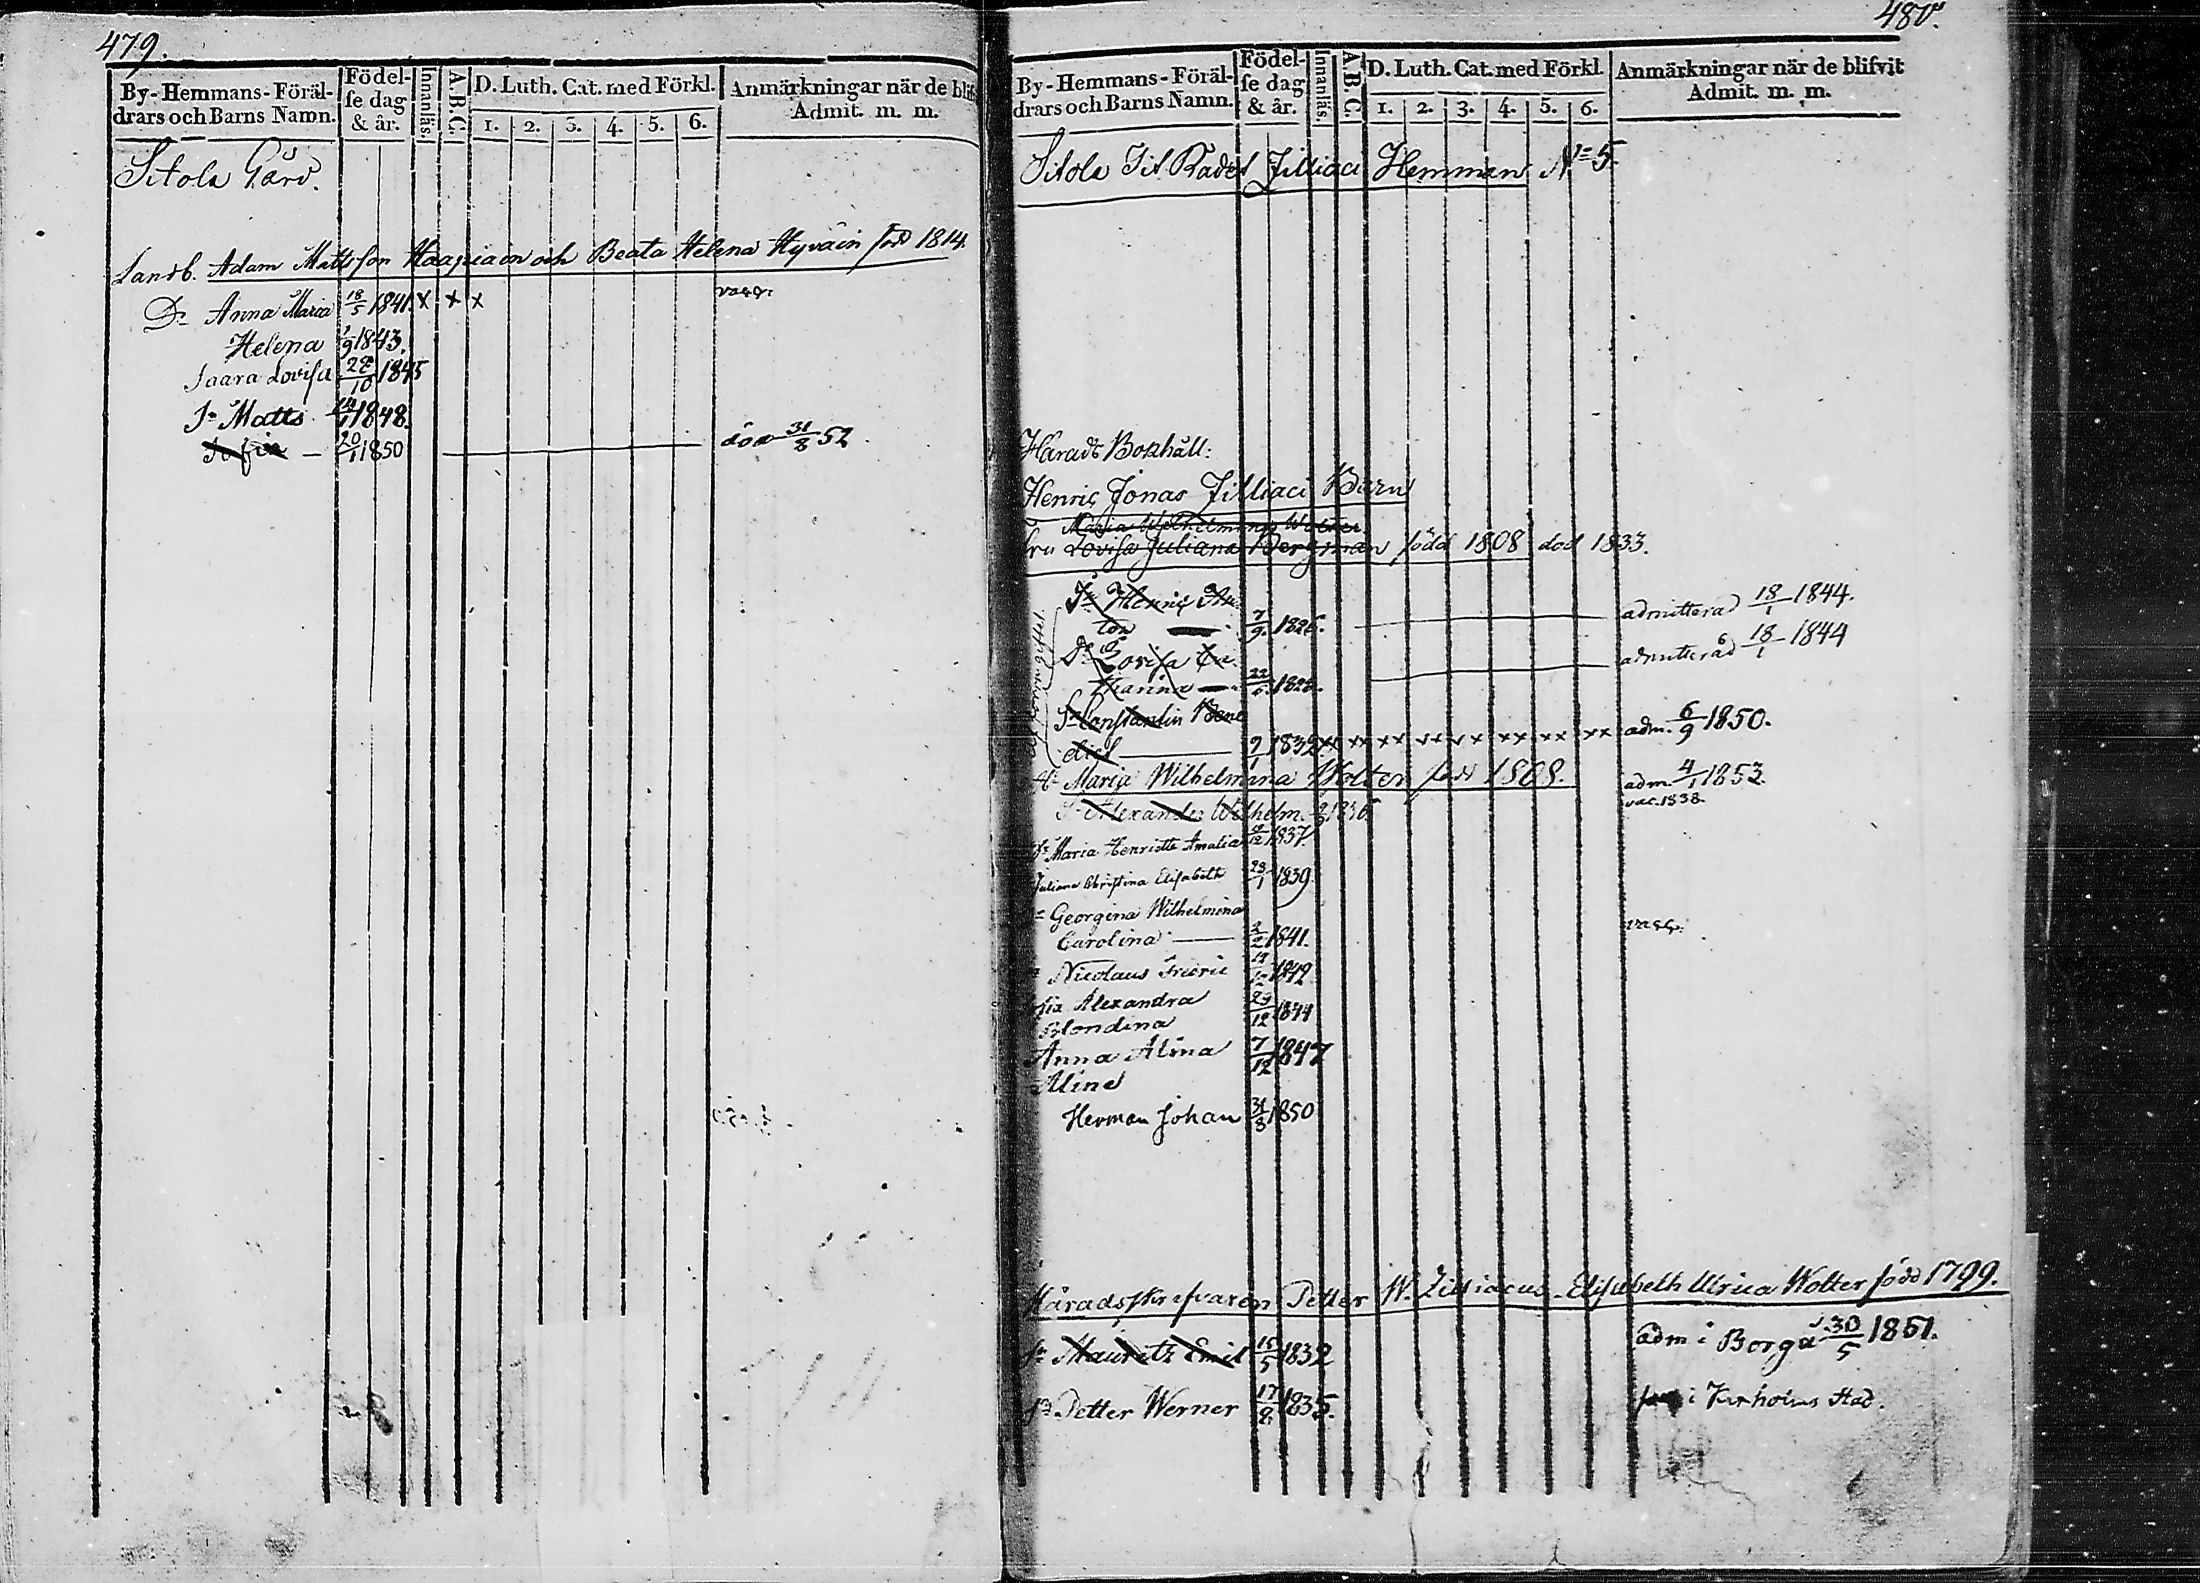 479.
By-Hemmans-Föräl-
drars och Barns Namn.
Födel-
se dag
& år.
Innanläs.
A.B.C.
D. Luth. Cat. med Förkl.
1. 2. 3. 4. 5. 6.
Anmärkningar när de blif
Admit. m. m.
Sitola Gård.
Landb. Adam Mattsson Haapiain och Beata Helena Hyväin född 1814.
Dr Anna Maria 18/5 1841. x x x vacc.
Helena 1/9 1843.
Saara Lovisa 22/10 1845
Sn Matts 14/1 1848.
Sofia — 20/1 1850 död 31/8 52.
480.
By-Hemmans-Föräl-
drars och Barns Namn.
Födel-
se dag
& år.
Innanläs.
A.B.C.
D. Luth. Cat. med Förkl.
1. 2. 3. 4. 5. 6.
Anmärkningar när de blifvit
Admit. m. m.
Sitola Zilliaci Hemman No 5.
Henric Jonas Zilliaci Barn
Maria Wilhelmina Wolter
Fru Lovisa Juliana Bergman född 1808 död 1833.
Sn Henric An-
ton 7/9. 1826. admitterad 18/1 1844.
Dr Lovisa Ca-
tharina 1828. admitterad 18/1 1844
Sn Constantin Bene
dict 9/1 1832 xx xx xx xx xx xx xx xx adm. 6/9 1850.
Maria Wilhelmina Wolter född 1808. adm. 4/1 1853.
Sn Alexander Wilhelm. 1836 vac. 1838.
Maria Henriette Amalia 1837.
Juliana Christina Elisabeth 23/1 1839
Georgina Wilhelmina
Carolina — 2/2 1841. vacc.
Nicolaus Fredric 1842
Sofia Alexandra 29/12 1844
Blondina
Anna Alma 7/12 1847
Aline
Herman Johan 31/8 1850
Häradsskrifvaren Petter W. Zilliacus - Elisabeth Ulrica Wolter född 1799.
Sn Mauritz Emil 15/5 1832 adm i Borgå 30/5 1851.
Sn Petter Werner 17/8 1835. i Kexholms Stad.